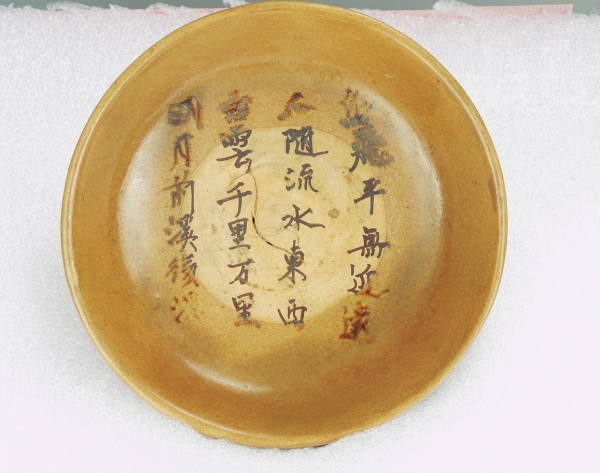 鳥飛平無近遠
人随流水東西
白雲千里万里
明月前溪後溪